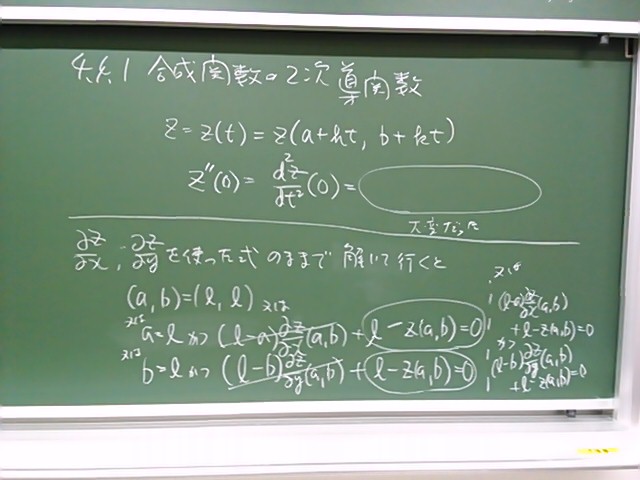 4.8.1 合成関数の2次導関数
z = z(t) = z(a+ht, b+kt)
z''(0) = d²z/dt² (0) =
大変だった
∂z/∂x, ∂z/∂y を使った式のままで 解いて行くと
(a, b) = (l, l) 又は
又は a = l かつ (l-a) ∂z/∂x (a, b) + l - z(a, b) = 0
又は b = l かつ (l-b) ∂z/∂y (a, b) + l - z(a, b) = 0
又は
(l-a) ∂z/∂x (a, b)
+ l - z(a, b) = 0
かつ
(l-b) ∂z/∂y (a, b)
+ l - z(a, b) = 0